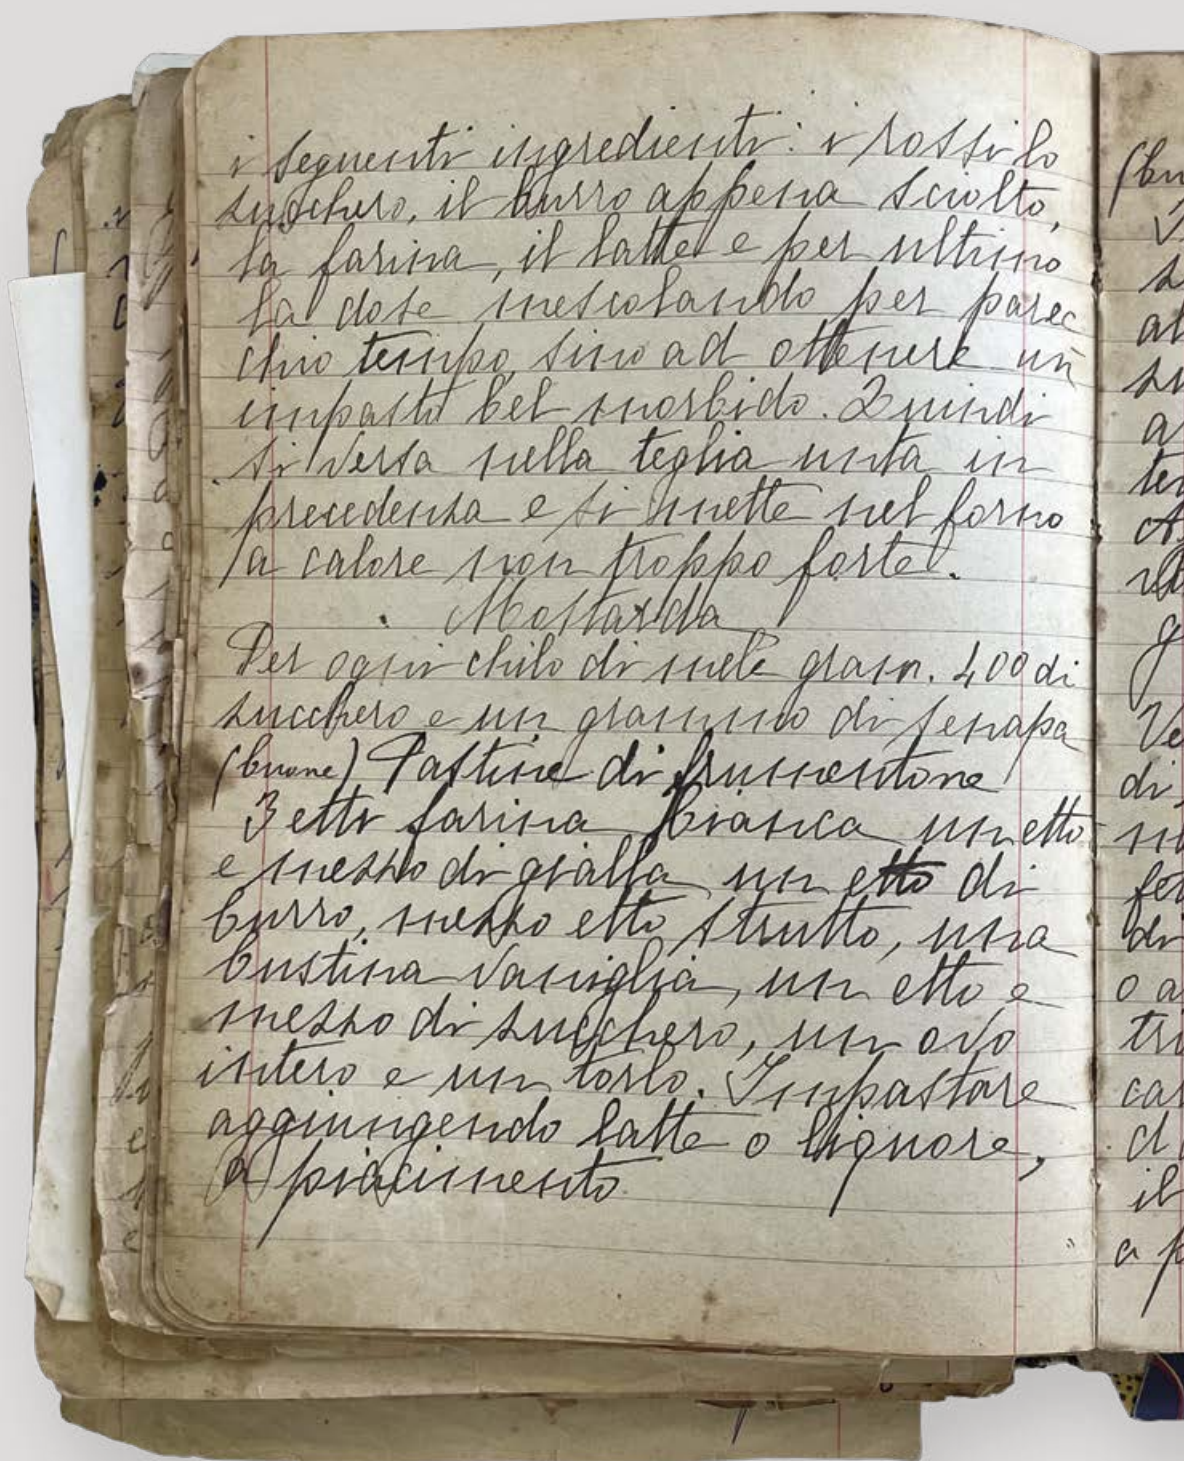 i seguenti ingredienti: i rossi lo
zucchero, il burro appena sciolto,
la farina, il latte e per ultimo
la dose mescolando per parec
chio tempo, sino ad ottenere un
impasto bel morbido. Quindi
si versa nella teglia unta in
precedenza e si mette nel forno
a calore non troppo forte.
Mostarda
Per ogni chilo di mele gram. 400 di
zucchero e un grammo di senapa
(buone) Pastine di frumentone
3 etti farina bianca un etto
e mezzo di gialla un etto di
burro, mezzo etto strutto, una
bustina vaniglia, un etto e
mezzo di zucchero, un ovo
intero e un torlo. Impastare
aggiungendo latte o liquore,
a piacimento